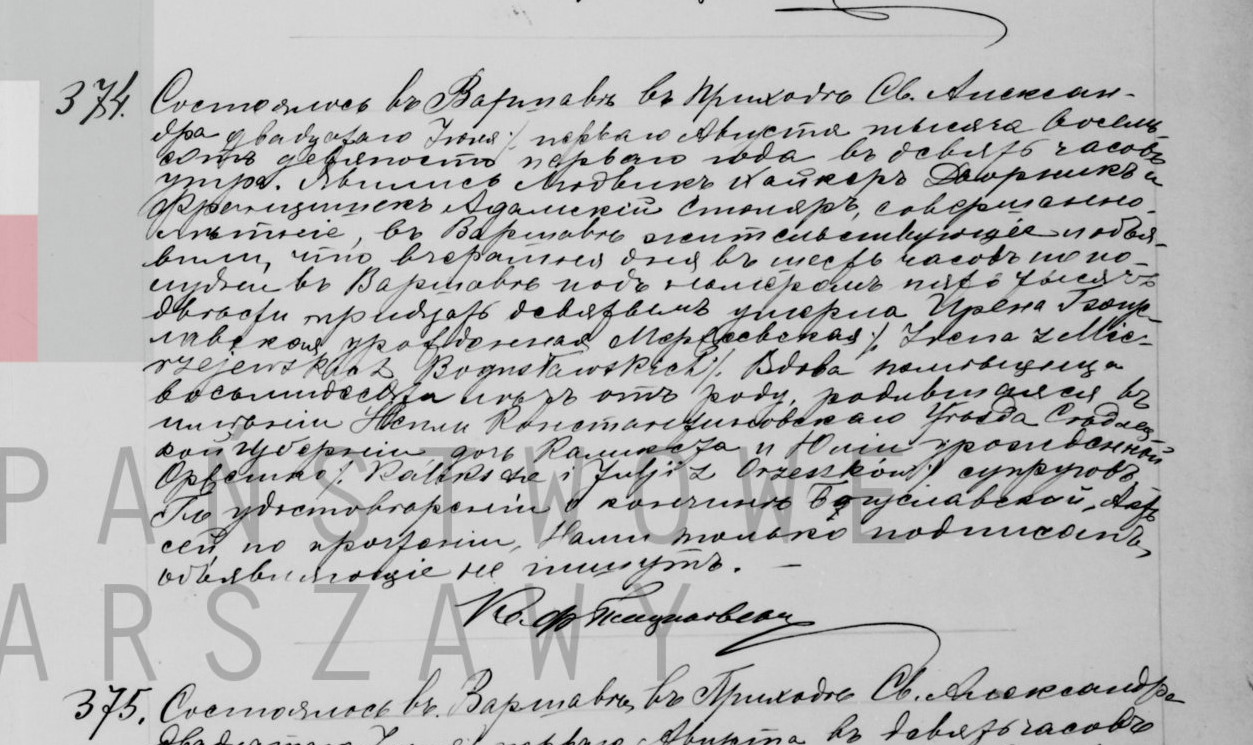 374. Состоялось въ Варшавѣ въ Приходѣ Св. Алексан-
дра двадцатаго Іюля /: перваго Августа тысяча восемь-
сотъ девяносто перваго года въ девять часовъ
утра. Явились Людвикъ Дворникъ и
Францишекъ Адамскій Столяръ, совершенно-
лѣтніе, въ Варшавѣ жительствующіе и объя-
вили, что вчерашняго дня въ шесть часовъ по по-
лудни въ Варшавѣ подъ номеромъ пять тысячъ
двѣсти тридцать девятымъ умерла Ирена Богус-
лавская урожденная Мержеевская /: Irena z Mie-
rzejewskich Bogusławska :/ Вдова помѣщица
восьмидесяти лѣтъ отъ роду, родившаяся въ
имѣніи Константиновскаго Уѣзда Сѣдлец-
кой Губерніи дочь Каликста и Юліи урожденной
Оржешко /: Kaliksta i Julji z Orzeszków :/ супруговъ
По удостовѣреніи о кончинѣ Богуславской, Актъ
сей по прочтеніи, Нами только подписанъ,
объявляющіе не пишутъ. —
375. Состоялось въ Варшавѣ, въ Приходѣ Св. Александра
двадцатаго перваго Августа въ девять часовъ
PAŃSTWOWE
ARSZAWY